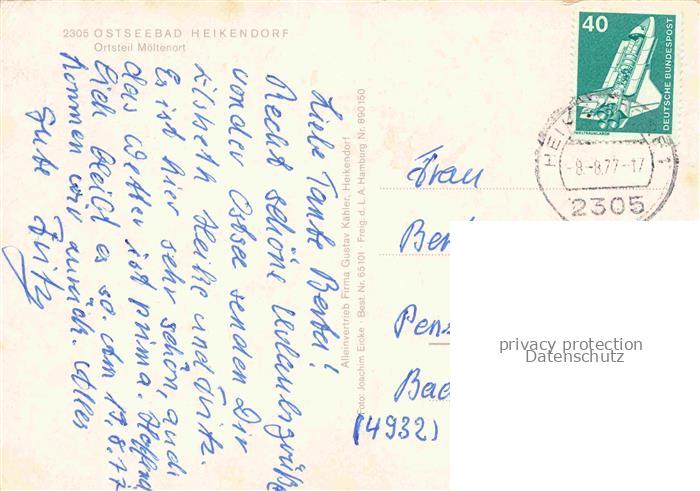 2305 OSTSEEBAD HEIKENDORF
Ortsteil Möltenort
Liebe Tante Bertel!
Recht schöne Urlaubsgrüße
von der Ostsee senden Dir
Elsbeth Heike und Fritz.
Es ist hier sehr schön, auch
das Wetter ist prima. Hoffentl
bleibt es so. Am 19.8.77
kommen wir zurück. Alles
Gute Fritz
Alleinvertrieb Firma Gustav Kähler, Heikendorf
Foto: Joachim Eicke · Best. Nr. 65101 · Freig. d. L.A. Hamburg Nr. 890150
40
DEUTSCHE BUNDESPOST
WELTRAUMLABOR
HEIK
1
-8.-8.77-17
2305
Frau
Ber
Pens
Bad
(4932)
privacy protection
Datenschutz